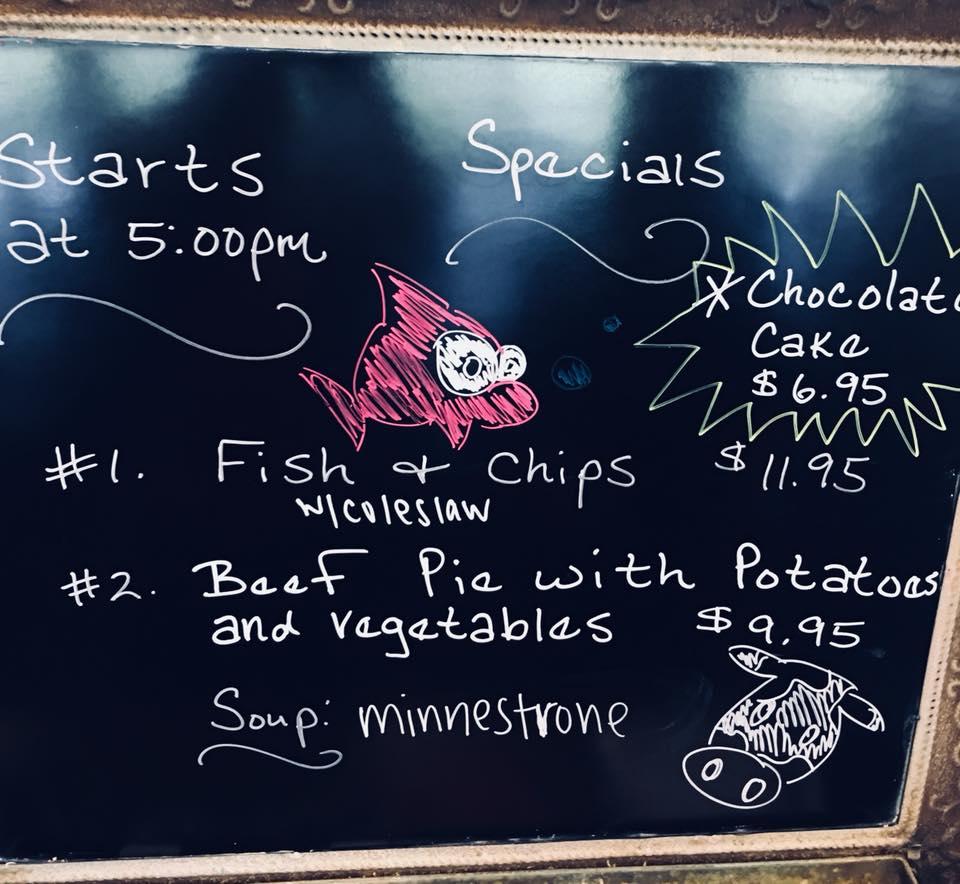 Starts
at 5:00pm
Specials
* Chocolate
Cake
$6.95
#1. Fish & Chips $11.95
w/coleslaw
#2. Beef Pie with Potatoes
and vegetables $9.95
Soup: minnestrone